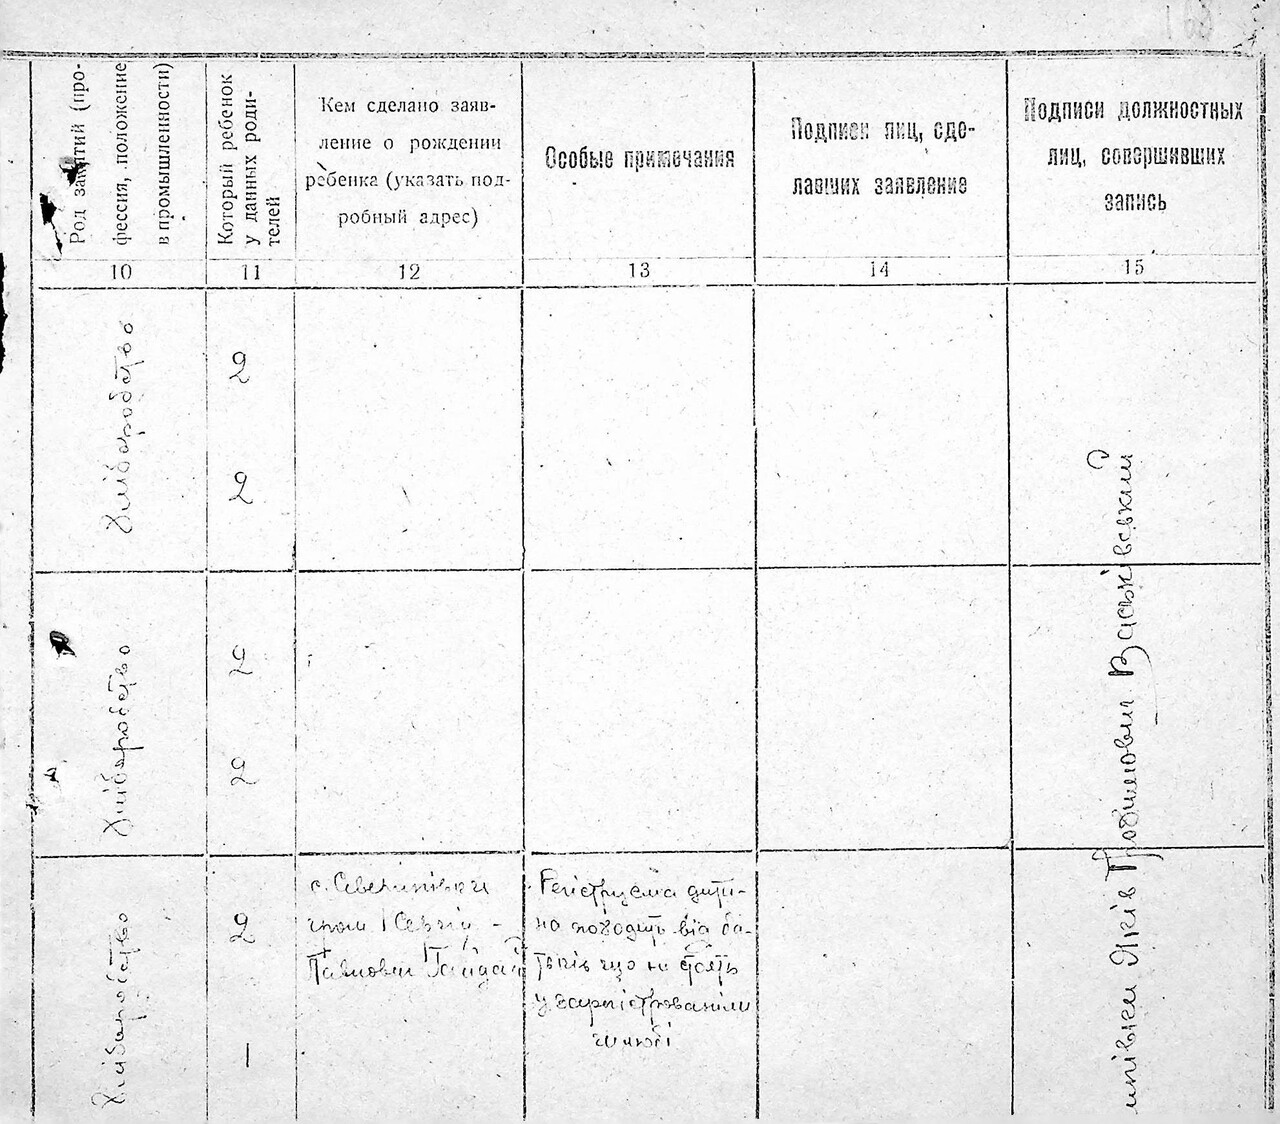 Род занятий (про-
фессия, положение
в промышленности)
Который ребенок
у данных роди-
телей
Кем сделано заяв-
ление о рождении
ребенка (указать под-
робный адрес)
Особые примечания
Подписи лиц, сде-
лавших заявление
Подписи должностных
лиц, совершивших
запись
10
11
12
13
14
15
Хліборобство
2
2
Хліборобство
2
2
Хліборобство
2
—
с. Северинівки
Сергій
Павлович Гайдай
Регіструєма дити-
на походить від ба-
тьків що не стоять
у зарегістрованім
шлюбі
Яків Трохимович Васьківський